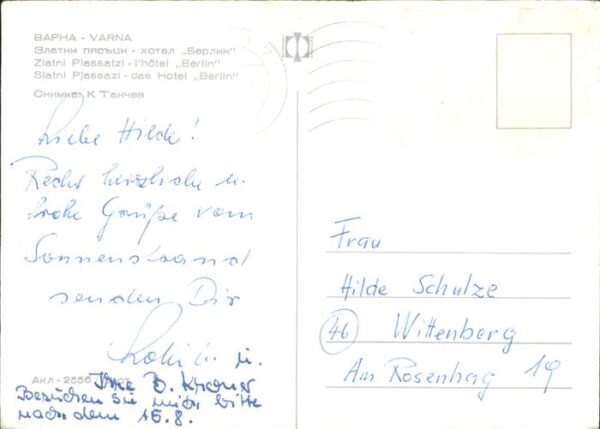 ВАРНА - VARNA
Златни пясъци - хотел „Берлин"
Zlatni Piassatzi - l'hôtel „Berlin"
Slatni Pjassazi - das Hotel „Berlin"
Снимка: К Танчев
Liebe Hilde!
Recht herzliche u.
frohe Grüße vom
Sonnenstrand
senden Dir
u.
Акл - 2556
Ihre B.
Besuchen Sie mich bitte
nach dem 15.8.
Frau
Hilde Schulze
46 Wittenberg
Am Rosenhag 19